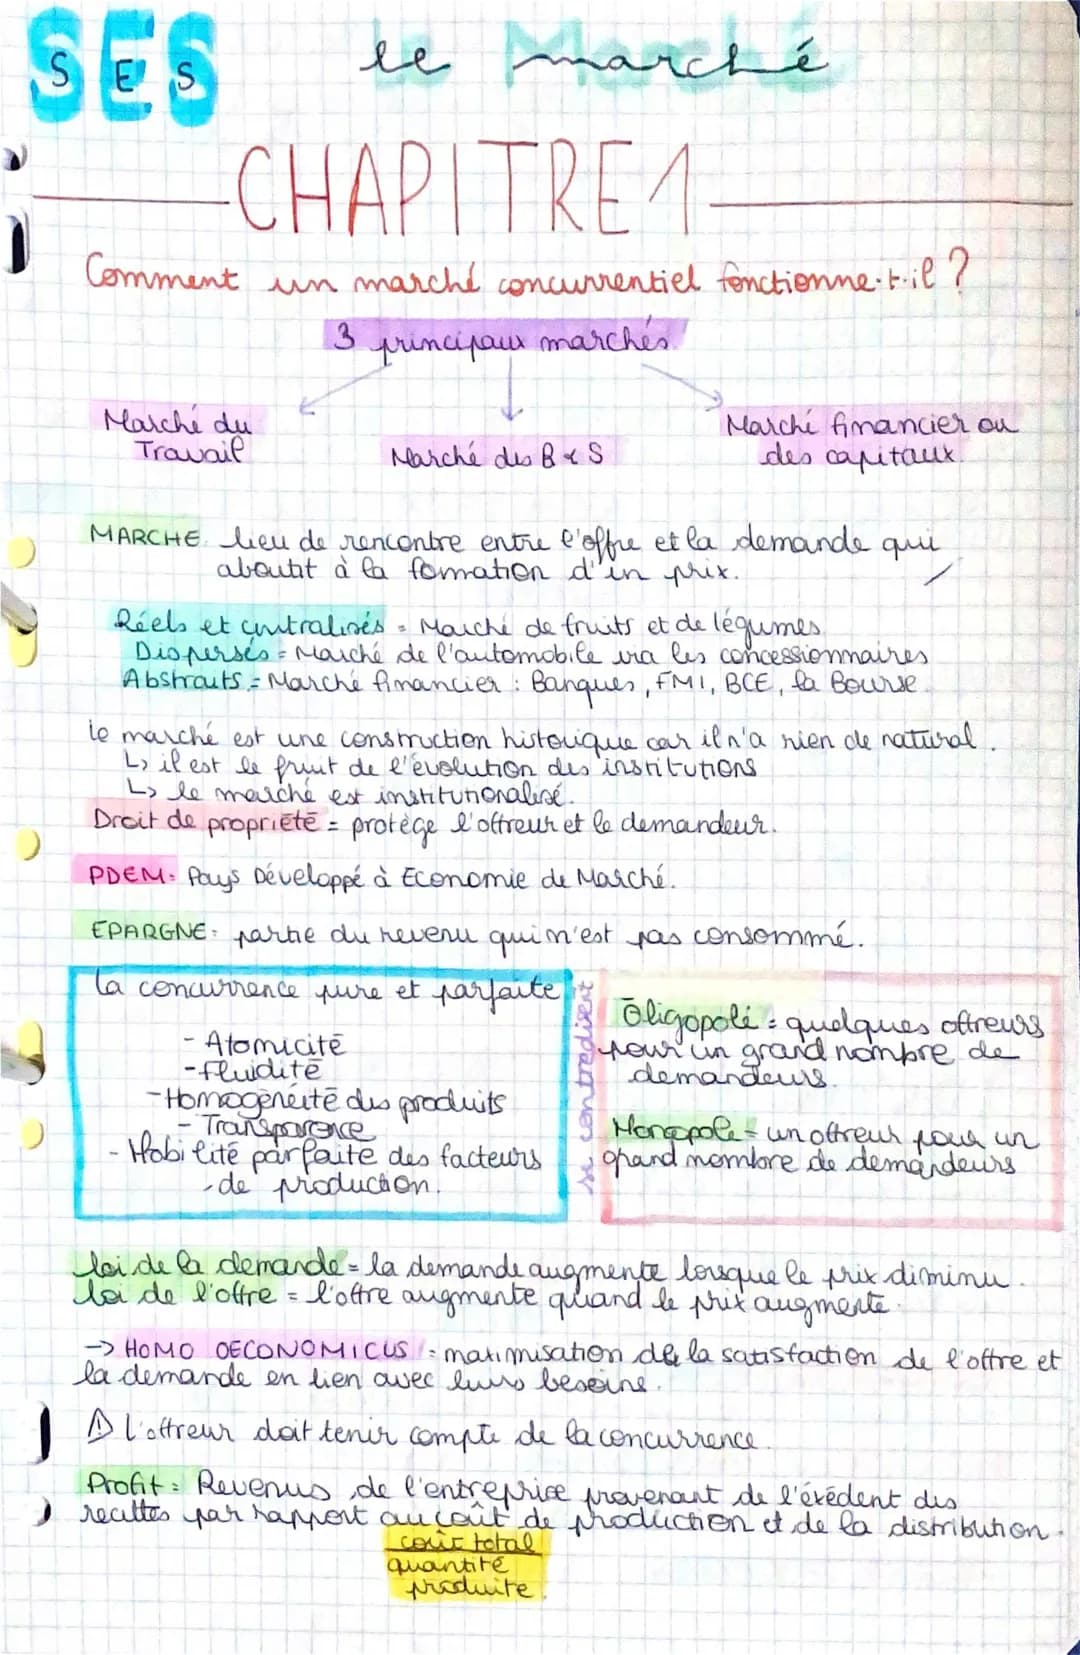 SES le Marché
S E S
CHAPITRE 1
Comment un marché concurrentiel fonctionne-t-il ?
3 principaux marchés
Marché du
Travail
Marché des B & S
Marché financier ou
des capitaux.
MARCHE lieu de rencontre entre l'offre et la demande qui
aboutit à la formation d'in prix.
Réels et centralisés = Marché de fruits et de légumes
Dispersés = Marché de l'automobile via les concessionnaires
Abstraits = Marché financier : Banques, FMI, BCE, la Bourse.
le marché est une construction historique car il n'a rien de natural.
↳ il est le fruit de l'évolution des institutions
↳ le marché est institutionalisé.
Droit de propriété = protège l'offreur et le demandeur.
PDEM = Pays Développé à Economie de Marché.
EPARGNE = partie du revenu qui n'est pas consommé.
la concurrence pure et parfaite
- Atomicité
- fluidité
- Homogénéité des produits
- Transparence
- Mobilité parfaite des facteurs
de production.
se contredisent
Oligopole = quelques offreurs
pour un grand nombre de
demandeurs.
Monopole = un offreur pour un
grand nombre de demandeurs
loi de la demande = la demande augmente lorsque le prix diminu.
loi de l'offre = l'offre augmente quand le prix augmente.
→ HOMO OECONOMICUS = maximisation de la satisfaction de l'offre et
la demande en lien avec leurs besoins.
⚠ L'offreur doit tenir compte de la concurrence.
Profit = Revenus de l'entreprise provenant de l'éxédent des
recettes par rapport au coût de production et de la distribution.
coût total
quantité
produite.